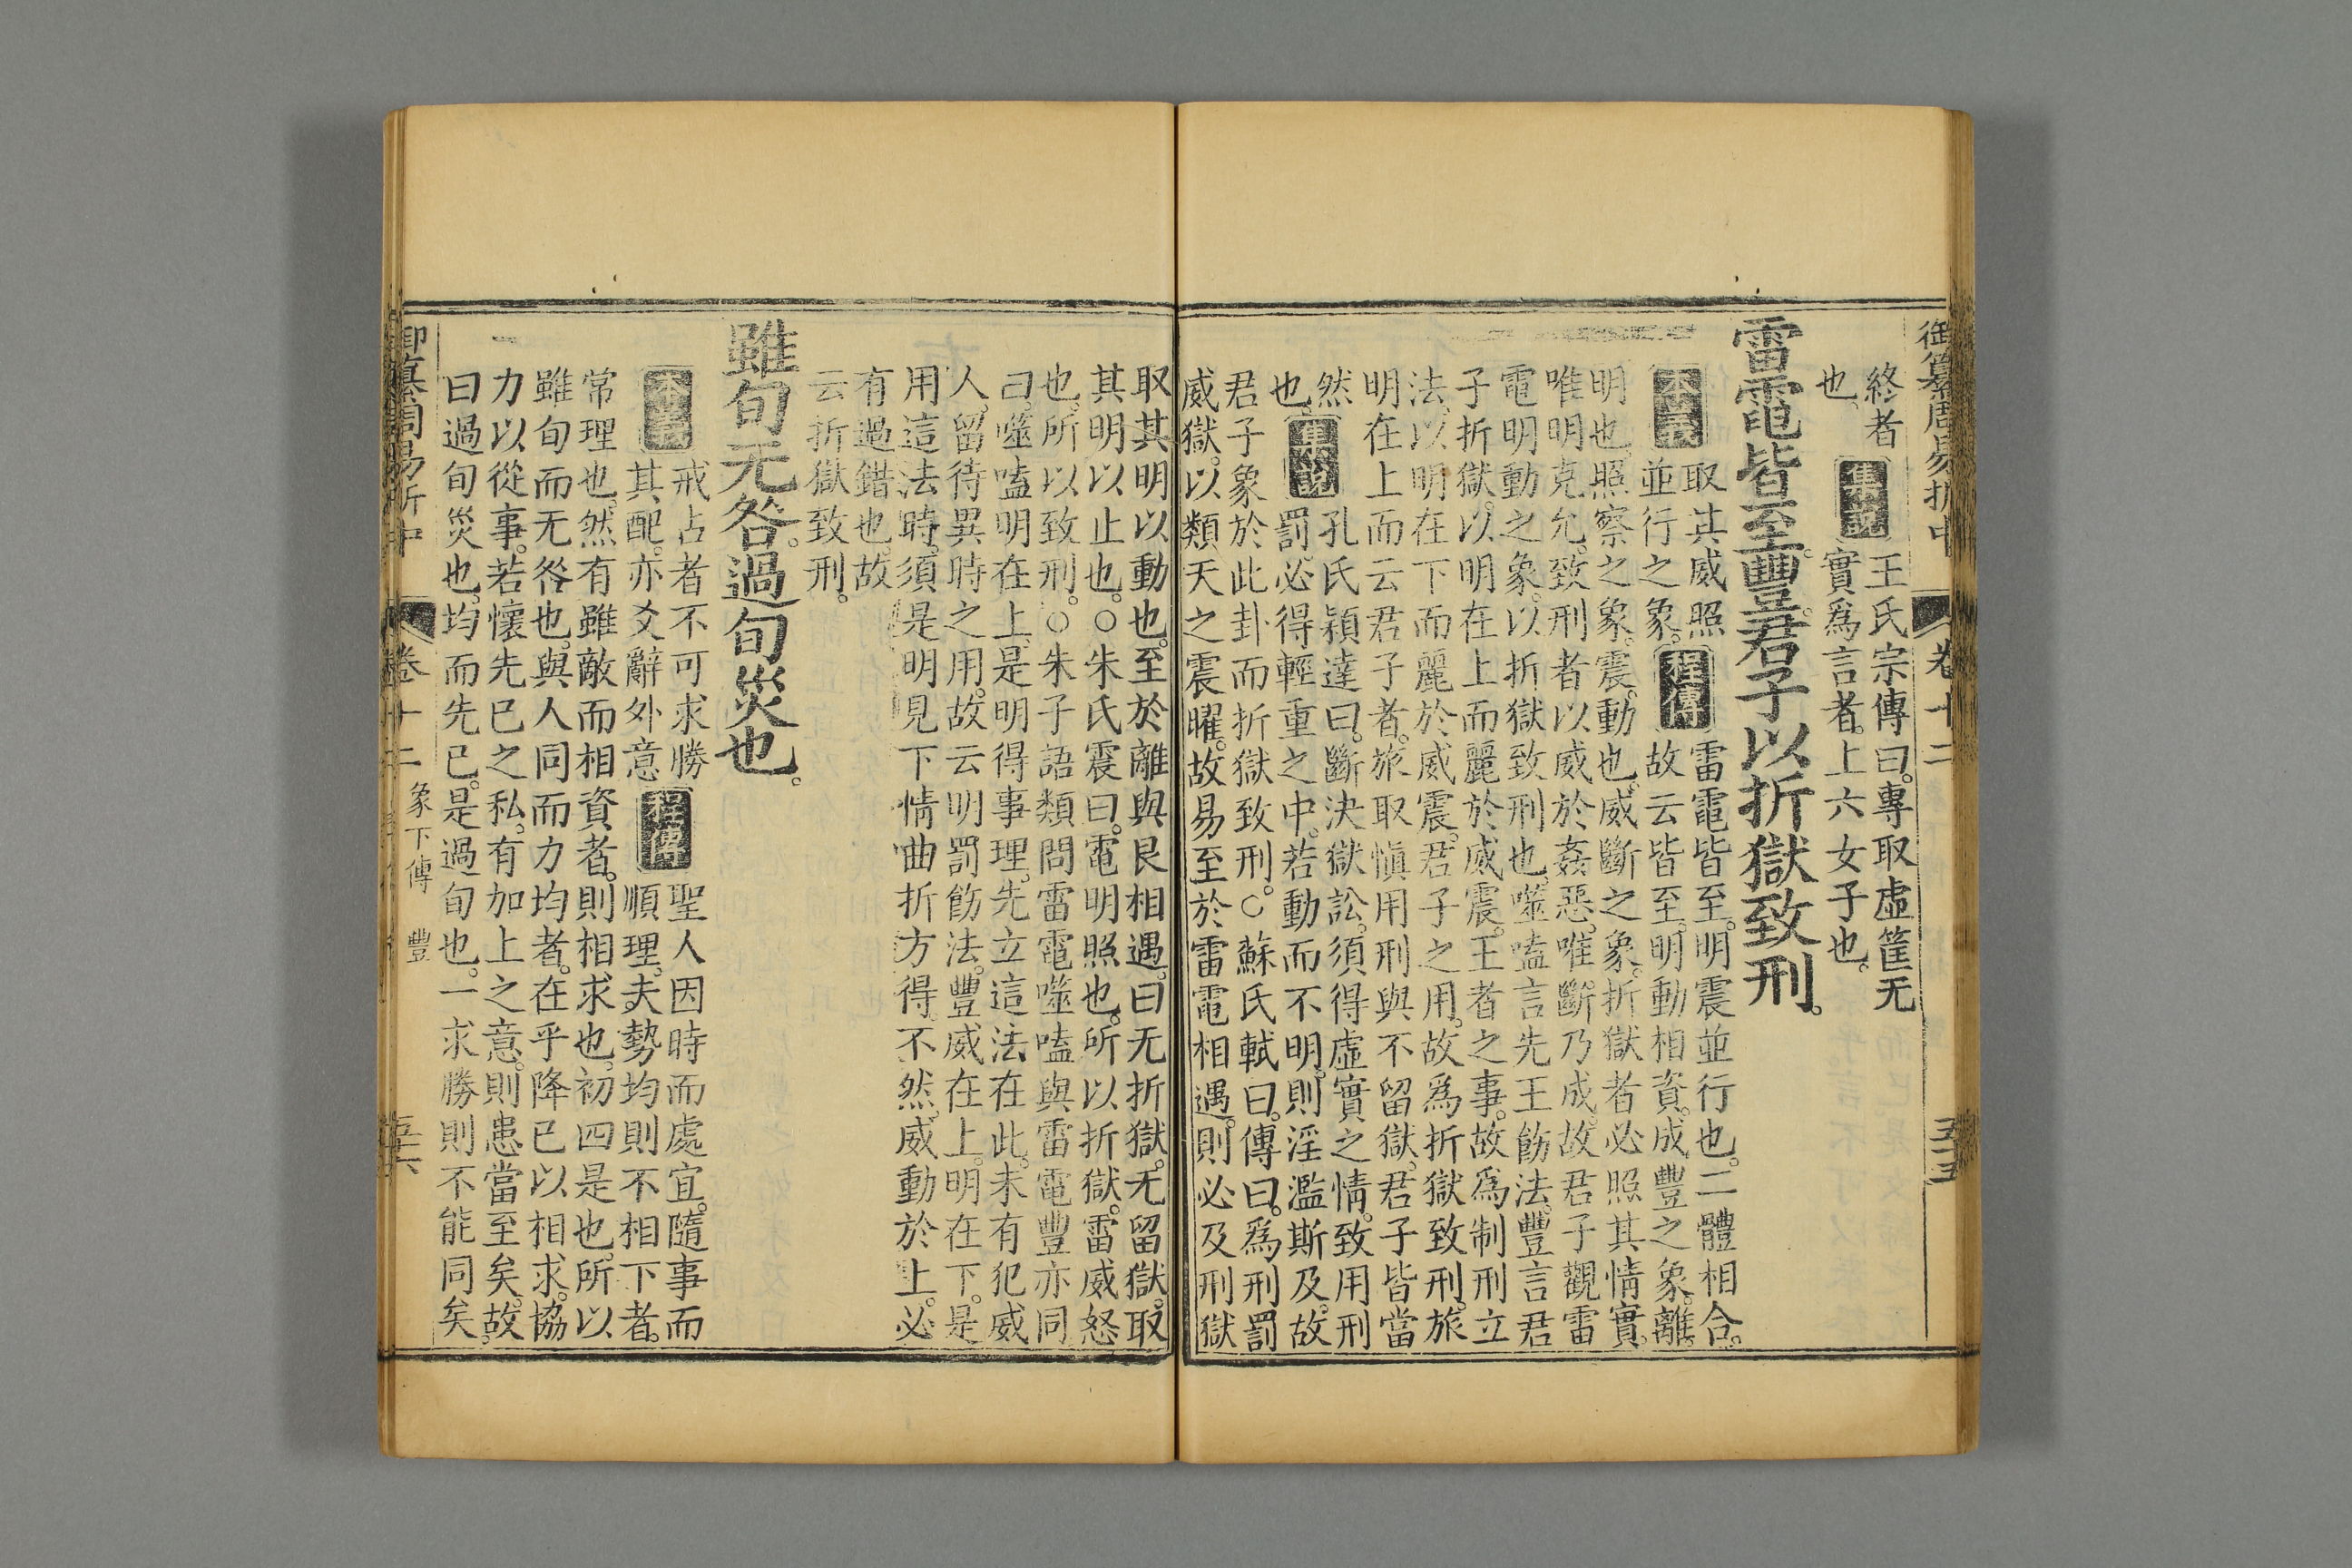 御纂周易折中
卷十二
五十五
終者
也。
集說
王氏宗傳曰。專取虛筐无
實爲言者。上六女子也。
雷電皆至。豐。君子以折獄致刑。
本義
取其威照
並行之象。
程傳
雷電皆至。明震並行也。二體相合。
故云皆至。明動相資。成豐之象。離。
明也。照察之象。震。動也。威斷之象。折獄者必照其情實。
唯明克允。致刑者以威於姦惡。唯斷乃成。故君子觀雷
電明動之象。以折獄致刑也。噬嗑言先王飭法。豐言君
子折獄。以明在上而麗於威震。王者之事。故爲制刑立
法。以明在下而麗於威震。君子之用。故爲折獄致刑。旅
明在上而云君子者。旅取慎用刑與不留獄。君子皆當
然
也。
集說
孔氏穎達曰。斷決獄訟。須得虛實之情。致用刑
罰。必得輕重之中。若動而不明。則淫濫斯及。故
君子象於此卦而折獄致刑。○蘇氏軾曰。傳曰。爲刑罰
威獄。以類天之震曜。故易至於雷電相遇。則必及刑獄
取其明以動也。至於離與艮相遇。曰无折獄。无留獄。取
其明以止也。○朱氏震曰。電明照也。所以折獄。雷威怒
也。所以致刑。○朱子語類問雷電噬嗑與雷電豐亦同
曰。噬嗑明在上。是明得事理。先立這法在此。未有犯威
人。留待異時之用。故云明罰飭法。豐威在上。明在下。是
用這法時。須是明見下情曲折方得。不然。威動於上。必
有過錯也。故
云折獄致刑。
雖旬无咎。過旬災也。
本義
戒占者不可求勝
其配。亦爻辭外意
程傳
聖人因時而處宜。隨事而
順理。夫勢均則不相下者。
常理也。然有雖敵而相資者。則相求也。初四是也。所以
雖旬而无咎也。與人同而力均者。在乎降已以相求。協
力以從事。若懷先已之私。有加上之意。則患當至矣。故
曰過旬災也。均而先已。是過旬也。一求勝則不能同矣。
御纂周易折中
卷十二
彖下傳 豐
五十六